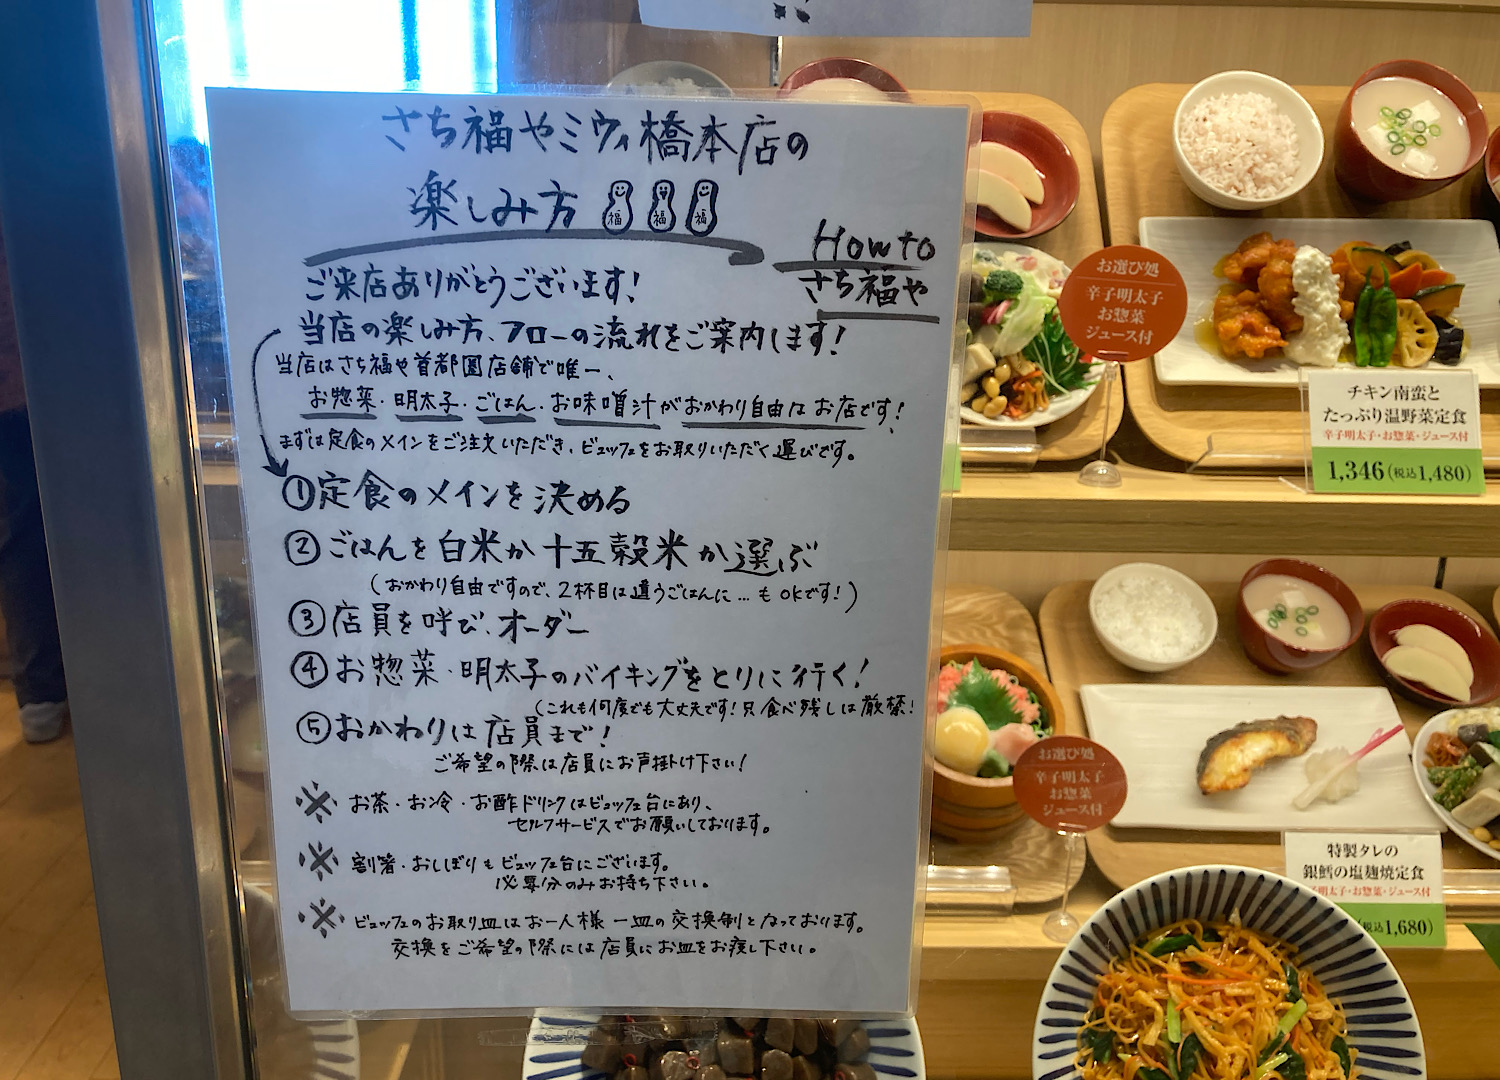 さち福やミウィ橋本店の
楽しみ方
福 福 福
How to
さち福や
ご来店ありがとうございます!
当店の楽しみ方、フローの流れをご案内します!
当店はさち福や首都圏店舗で唯一、
お惣菜・明太子・ごはん・お味噌汁がおかわり自由なお店です!
まずは定食のメインをご注文いただき、ビュッフェをお取りいただく運びです。
①定食のメインを決める
②ごはんを白米か十五穀米か選ぶ
(おかわり自由ですので、2杯目は違うごはんに…もOKです!)
③店員を呼び、オーダー
④お惣菜・明太子のバイキングをとりに行く!
(これも何度でも大丈夫です!只食べ残しは厳禁!
⑤おかわりは店員まで!
ご希望の際は店員にお声掛け下さい!
※お茶・お冷・お酢ドリンクはビュッフェ台にあり、
セルフサービスでお願いしております。
※割箸・おしぼりもビュッフェ台にございます。
必要分のみお持ち下さい。
※ビュッフェのお取り皿はお一人様一皿の交換制となっております。
交換をご希望の際には店員にお皿をお渡し下さい。
お選び処
辛子明太子
お惣菜
ジュース付
チキン南蛮と
たっぷり温野菜定食
辛子明太子・お惣菜・ジュース付
1,346(税込1,480)
お選び処
辛子明太子
お惣菜
ジュース付
特製タレの
銀鱈の塩麹焼定食
明太子・お惣菜・ジュース付
(税込1,680)